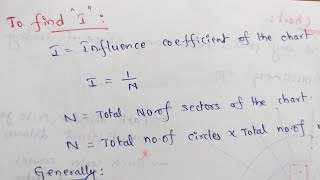 To find "I":
I = Influence coefficient of the chart
I = 1/N
N = Total No. of sectors of the chart.
N = Total no. of circles × Total no. of
Generally: